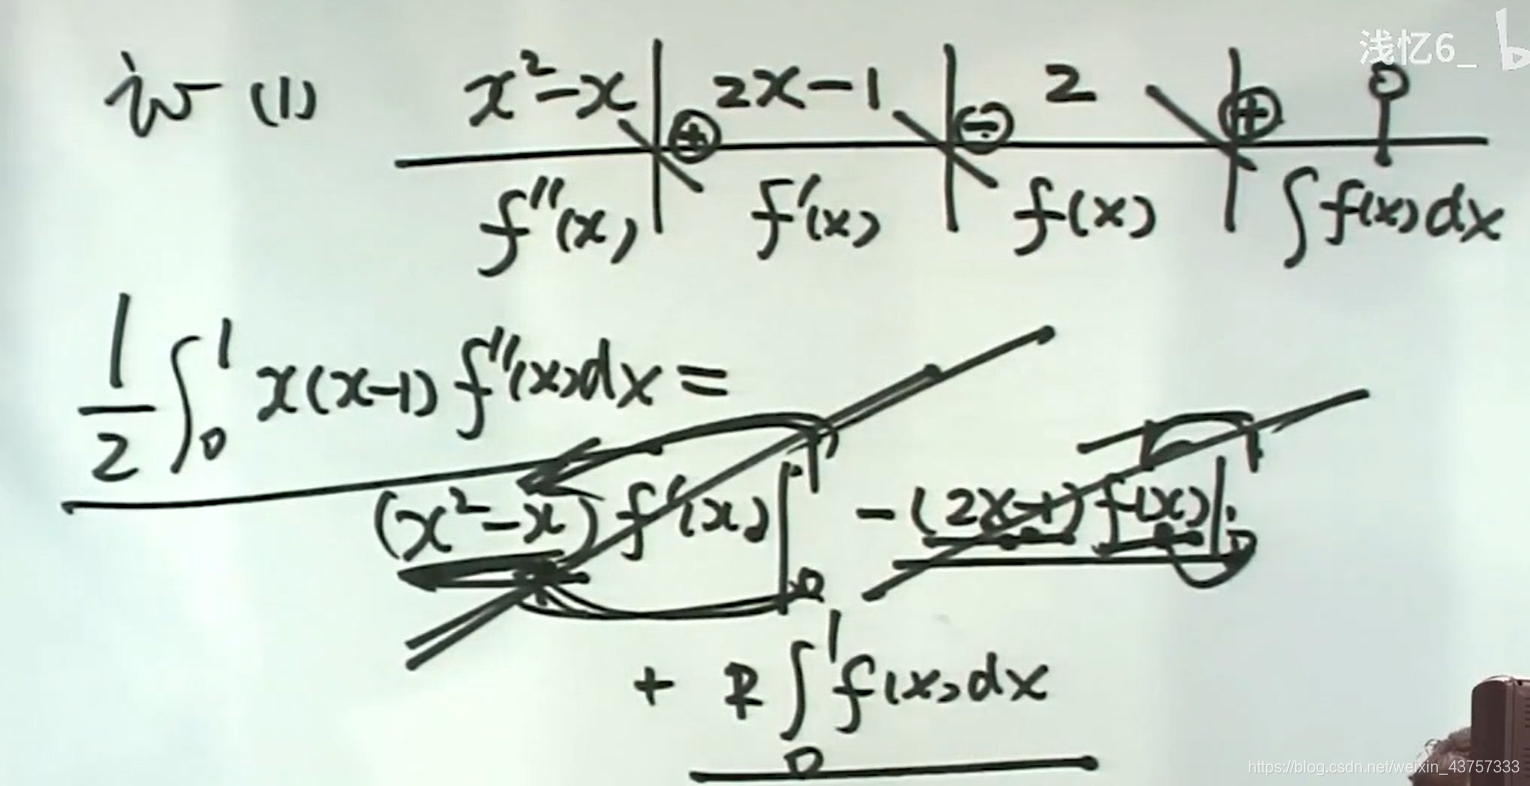 浅忆6_ b
证 (1) x²-x | 2x-1 | 2 | 0
⊕ ⊖ ⊕
f''(x) f'(x) f(x) ∫f(x)dx
1/2 ∫₀¹ x(x-1) f''(x)dx =
(x²-x) f'(x)|₀¹ -(2x-1) f(x)|₀¹
+ 2 ∫₀¹ f(x)dx
https://blog.csdn.net/weixin_43757333